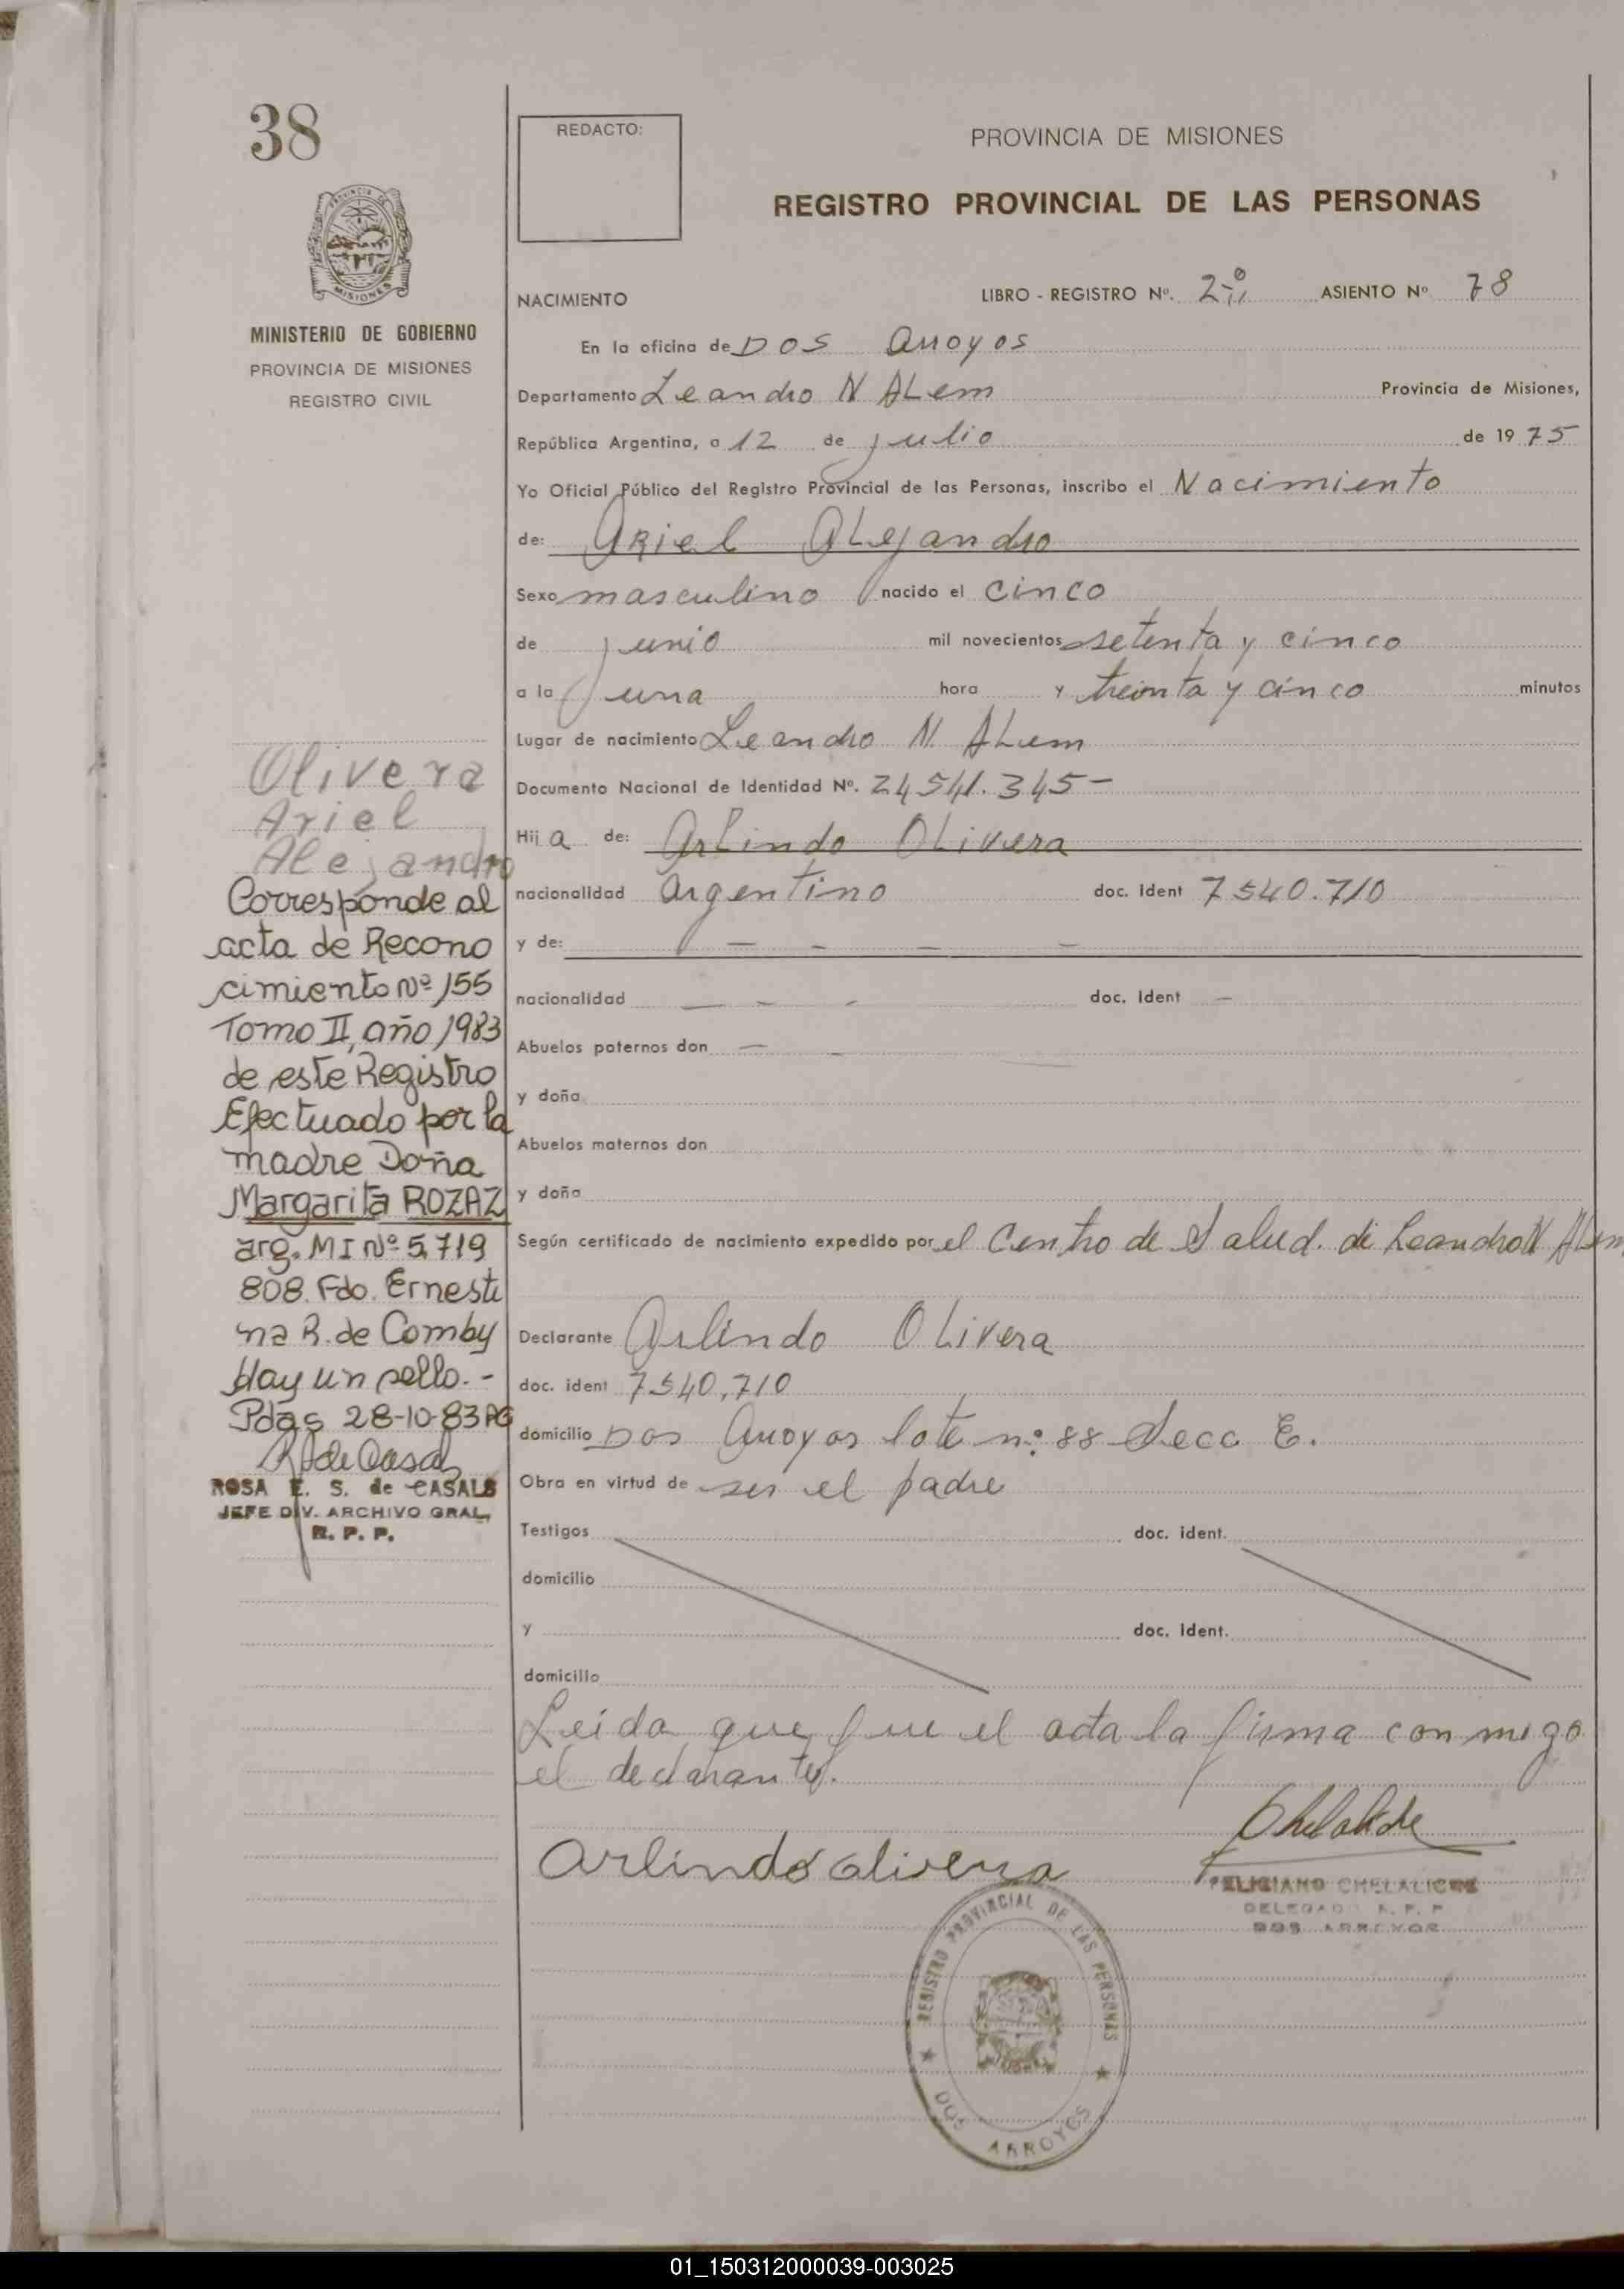 38
REDACTO:
PROVINCIA DE MISIONES
REGISTRO PROVINCIAL DE LAS PERSONAS
MISIONES
MINISTERIO DE GOBIERNO
PROVINCIA DE MISIONES
REGISTRO CIVIL
NACIMIENTO LIBRO - REGISTRO Nº. 2º ASIENTO Nº 78
En la oficina de DOS Arroyos
Departamento Leandro N ALem Provincia de Misiones,
República Argentina, a 12 de julio de 1975
Yo Oficial Público del Registro Provincial de las Personas, inscribo el Nacimiento
de: ARiel ALejandro
Sexo masculino nacido el cinco
de junio mil novecientos setenta y cinco
a la una hora y treinta y cinco minutos
Lugar de nacimiento Leandro N. ALem
Documento Nacional de Identidad Nº. 24541.345-
Hij a de: ArLindo OLivera
nacionalidad Argentino doc. ident 7540.710
y de: - - - -
nacionalidad - - - doc. Ident -
Abuelos paternos don - -
y doña
Abuelos maternos don
y doña
Según certificado de nacimiento expedido por el Centro de Salud. di Leandro N ALem
Declarante Arlindo OLivera
doc. ident 7540,710
domicilio Dos Arroyos lote nº: 88 Secc E.
Obra en virtud de ser el padre
Testigos doc. ident.
domicilio
y doc. ident.
domicilio
Leida que fue el acta la firma con migo
el declarante.
Arlindo olivera
FELICIANO CHELALICHE
DELEGADO R. P. P
DOS ARROYOS
REGISTRO PROVINCIAL DE LAS PERSONAS
DOS ARROYOS
Olivera
Ariel
Alejandro
Corresponde al
acta de Recono
cimiento Nº 155
Tomo II, año 1983
de este Registro
Efectuado por la
madre Doña
Margarita ROZAZ
arg. MI Nº 5,719
808. Fdo. Ernesti
na R. de Comby
Hay un sello.-
Pdas 28-10-83 AG
ROSA E. S. de CASALS
JEFE DIV. ARCHIVO GRAL,
R. P. P.
01_150312000039-003025